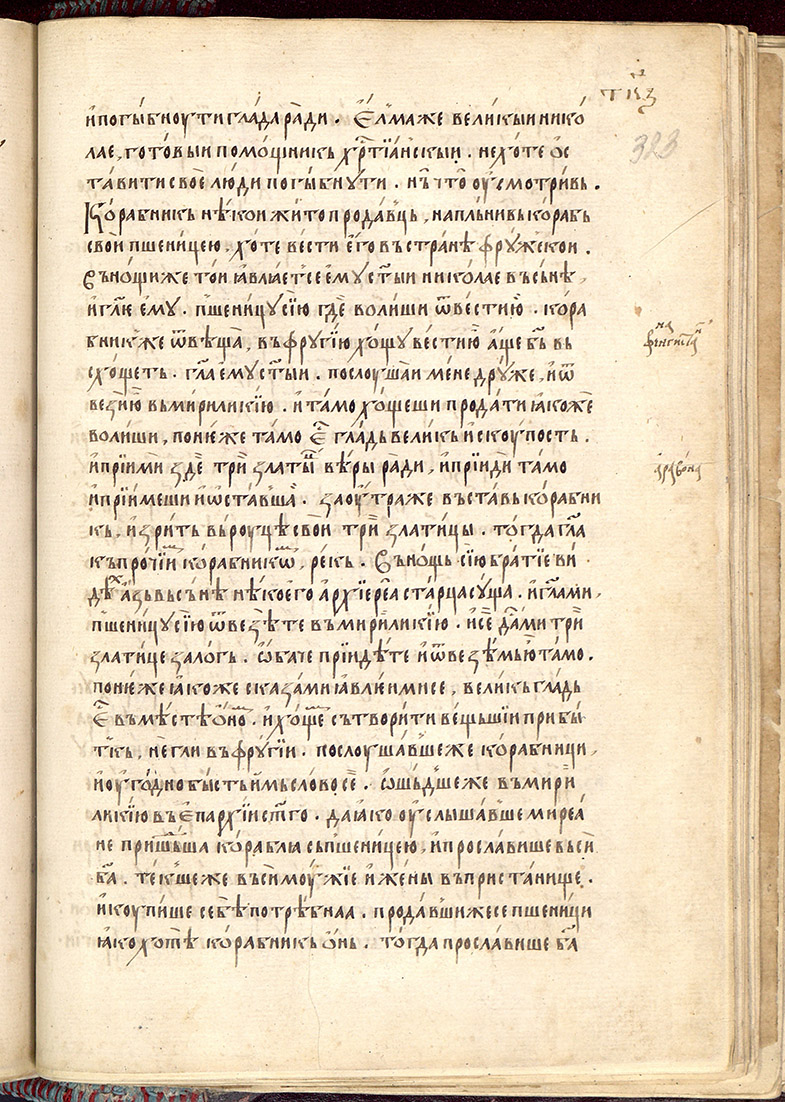 ткз
323
и҆ погы́бноути гла́да ра́ди . Е҆лма же вели́кыи нико́
лае , гото́выи помо́щникь хрⷭ҇тїа́нскыи . не хо́те ѡ҆с
та́вити своѐ лю́ди погы́бнути . нъ̀ что̀ оу҆смотри́вь .
Ко́рабникь нѣ́кои жи́то прода́вць , напль́нивы ко́рабь
сво́и пшени́цею . хо́те ве́сти е҆го̀ въ стра́нѣ фру́жскои .
Въ но́щи же то́и ꙗ҆влꙗ́етсе е҆му̀ ст҃ыи николае въ сь́нѣ ,
и҆ гл҃ѥ е҆му . пшени́цу сїю̀ гдѐ во́лиши ѿве́сти ю҆̀ . ко́ра
бникь же ѿвѣ́ща , въ фругі́ю хо́щу ве́сти ю҆̀ а҆́ще бг҃ь вь
схо́щеть . гл҃а е҆му̀ ст҃ыи . послоу́шаи ме́не дру́же , и҆ ѿ
ве́зи ю҆̀ вь мири ликі́ю . и҆ та́мо хо́щеши прода́ти ꙗ҆ко́же
во́лиши , поне́же та́мо е҆ⷭ҇ гла́дь вели́кь и҆ скоу́пость .
и҆ прїимѝ здѐ трѝ злати́ⷰ вѣ́ры ра́ди , и҆ прїидѝ та́мо
и҆ прїи́меши и҆ ѡ҆ста́вшаа . заоу́тра же въста́вь ко́рабни
кь , и҆ зри́ть вь роуцѣ̀ свои трѝ злати́цы . то́гда гл҃а
къ про́чїимь ко́рабникѡмь , ре́кь . Въ но́щь сїю̀ бра́тїе ви
дѣⷯ а҆́зь вь сь́нѣ нѣ́коего а҆рхїере́а ста́рца су́ща . и҆ гл҃а ми ,
пшени́цу сїю̀ ѿвезѣ́те въ мири ликі́ю . и҆ сѐ да́ ми трѝ
злати́це зало́гь . ѡ҆ба́че прїидѣ́те и҆ ѿвезѣ́мь ю҆̀ та́мо .
поне́же ꙗ҆ко́же сказа́ ми ꙗ҆влѥи́ ми се , вели́кь гла́дь
е҆ⷭ҇ въ мѣ́стѣ ѡ҆́номь . и҆ хо́щемь сътвори́ти ве́щьшїи прибы́
ткь , не́гли въ фругі́и . послоуша́вше же ко́рабници ,
и҆ оу҆го́дно бы́сть и҆мь сло́во сѐ . ѡ҆шь́дше же въ мири
ликі́ю въ е҆парх́їи ст҃го . да ꙗ҆́ко оу҆слыша́вше миреа́
не прише́дьша кора́блꙗ сь пшени́цею , и҆ просла́више вьсѝ
б҃а . те́кше же въсѝ моу́жїе и҆ же́ны въ приста́нище .
и҆ коупи́ше себѣ̀ потрѣ́бнаа . прода́вши же се пшени́ци
ꙗ҆́ко хо́тѣ ко́рабникь ѡ҆́нь . то́гда просла́више б҃а